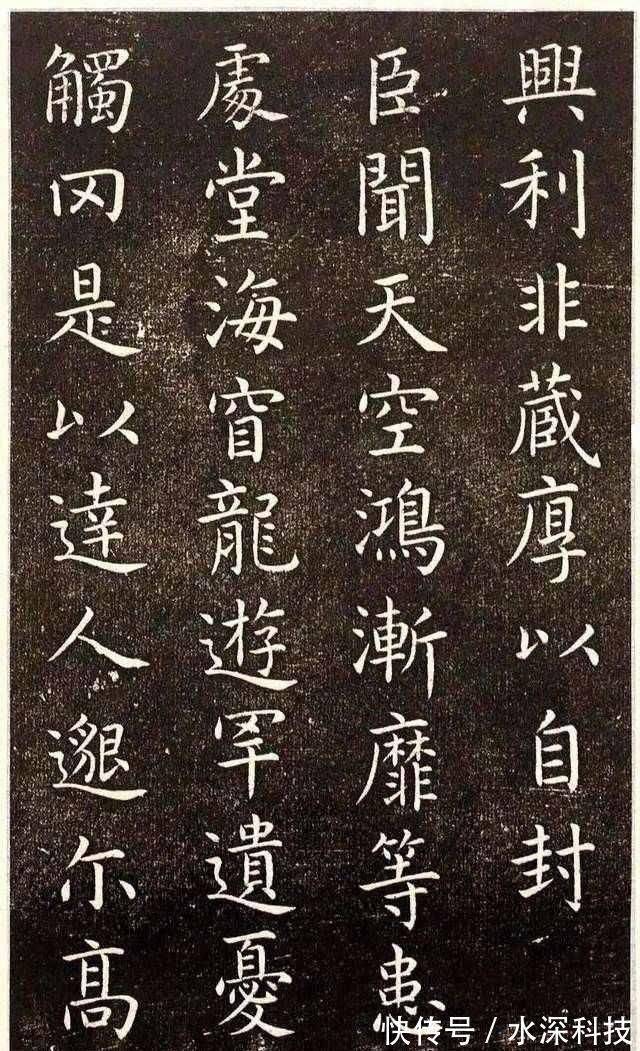 興利非藏厚以自封
臣聞天空鴻漸靡等患
處堂海窅龍遊罕遺憂
觸罔是以達人邈尓高
快传号/水深科技